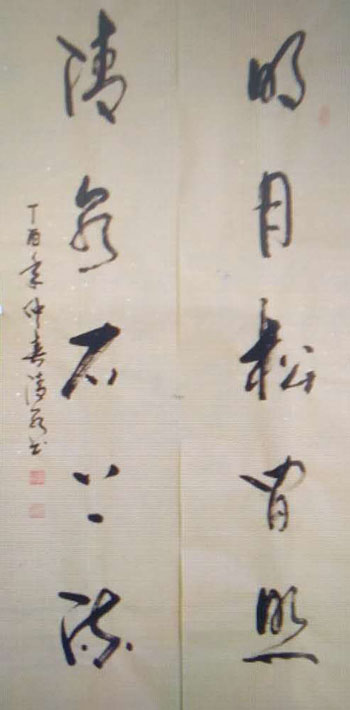 明月松间照
清泉石上流
丁酉年仲春